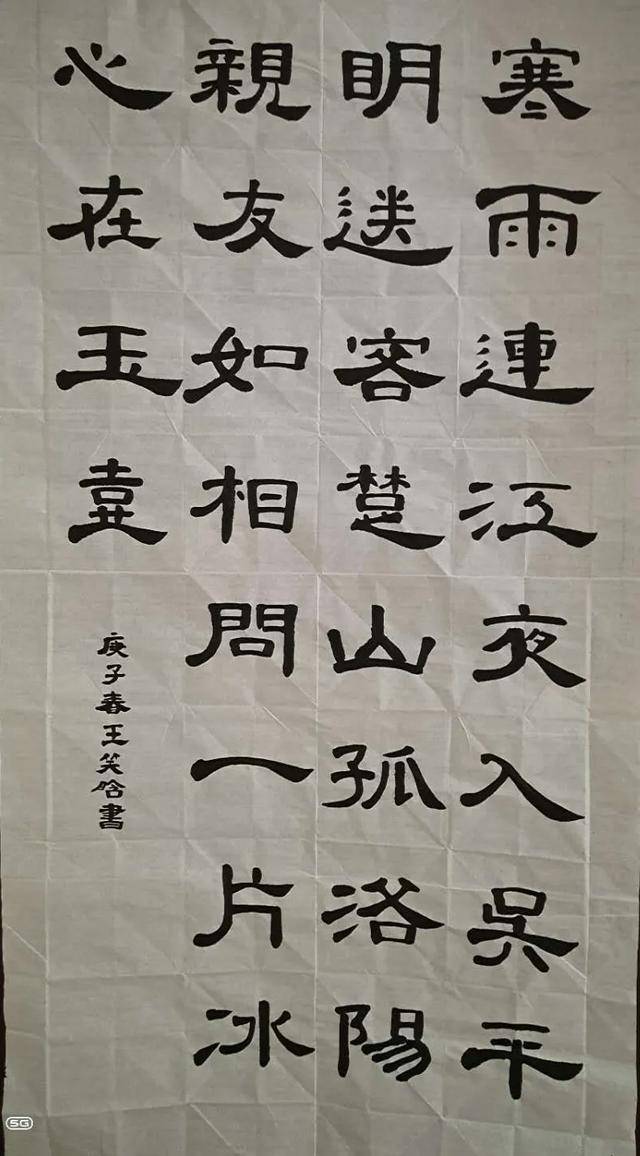 寒雨連江夜入吳平
明送客楚山孤洛陽
親友如相問一片冰
心在玉壺
庚子春王笑晗書
5G